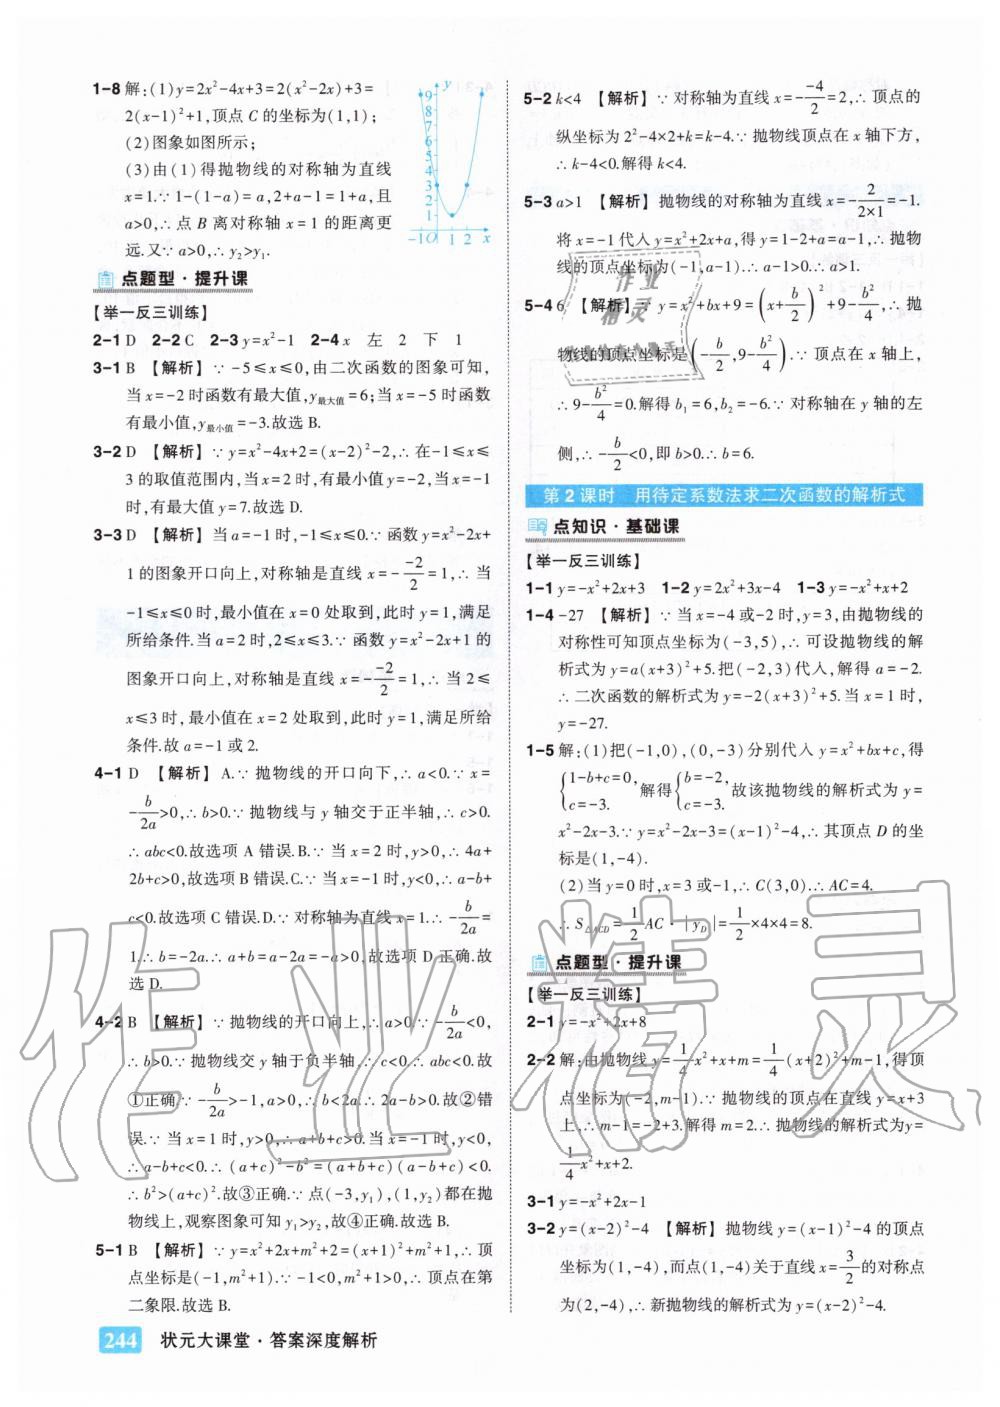 1-8 解:(1)y=2x²-4x+3=2(x²-2x)+3=
2(x-1)²+1,顶点 C 的坐标为(1,1);
(2)图象如图所示;
(3)由(1)得抛物线的对称轴为直线
x=1.∵ 1-(1-a)=a,2+a-1=1+a,且
a>0,∴ 点 B 离对称轴 x=1 的距离更
远.又∵ a>0,∴ y₂>y₁.
y
9
8
7
6
5
4
3
2
1
-1 O 1 2 x
点题型·提升课
【举一反三训练】
2-1 D 2-2 C 2-3 y=x²-1 2-4 x 左 2 下 1
3-1 B 【解析】∵ -5≤x≤0,由二次函数的图象可知,
当 x=-2 时函数有最大值,y最大值=6;当 x=-5 时函数
有最小值,y最小值=-3.故选 B.
3-2 D 【解析】∵ y=x²-4x+2=(x-2)²-2,∴ 在-1≤x≤
3 的取值范围内,当 x=2 时,有最小值 y=-2,当 x=-1
时,有最大值 y=7.故选 D.
3-3 D 【解析】当 a=-1 时,-1≤x≤0.∵ 函数 y=x²-2x+
1 的图象开口向上,对称轴是直线 x=-\frac{-2}{2}=1,∴ 当
-1≤x≤0 时,最小值在 x=0 处取到,此时 y=1,满足
所给条件.当 a=2 时,2≤x≤3.∵ 函数 y=x²-2x+1 的
图象开口向上,对称轴是直线 x=-\frac{-2}{2}=1,∴ 当 2≤
x≤3 时,最小值在 x=2 处取到,此时 y=1,满足所给
条件.故 a=-1 或 2.
4-1 D 【解析】A.∵ 抛物线的开口向下,∴ a<0.∵ x=
-\frac{b}{2a}>0,∴ b>0.∵ 抛物线与 y 轴交于正半轴,∴ c>0.
∴ abc<0.故选项 A 错误.B.∵ 当 x=2 时,y>0,∴ 4a+
2b+c>0.故选项 B 错误.C.∵ 当 x=-1 时,y<0,∴ a-b+
c<0.故选项 C 错误.D.∵ 对称轴为直线 x=1.∴ -\frac{b}{2a}=
1.∴ b=-2a.∴ a+b=a-2a=-a>0,故选项 D 正确.故
选 D.
4-2 B 【解析】∵ 抛物线的开口向上,∴ a>0.∵ -\frac{b}{2a}<0,
∴ b>0.∵ 抛物线交 y 轴于负半轴,∴ c<0.∴ abc<0.故
①正确.∵ -\frac{b}{2a}>-1,a>0,∴ b<2a.∴ 2a-b>0.故②错
误.∵ 当 x=1 时,y>0,∴ a+b+c>0.当 x=-1 时,y<0,
∴ a-b+c<0.∴ (a+c)²-b²=(a+b+c)(a-b+c)<0.
∴ b²>(a+c)².故③正确.∵ 点(-3,y₁),(1,y₂)都在抛
物线上,观察图象可知 y₁>y₂,故④正确.故选 B.
5-1 B 【解析】∵ y=x²+2x+m²+2=(x+1)²+m²+1,∴ 顶
点坐标是(-1,m²+1).∵ -1<0,m²+1>0,∴ 顶点在第
二象限.故选 B.
5-2 k<4 【解析】∵ 对称轴为直线 x=-\frac{-4}{2}=2,∴ 顶点的
纵坐标为 2²-4×2+k=k-4.∵ 抛物线顶点在 x 轴下方,
∴ k-4<0.解得 k<4.
5-3 a>1 【解析】抛物线的对称轴为直线 x=-\frac{2}{2×1}=-1.
将 x=-1 代入 y=x²+2x+a,得 y=1-2+a=a-1,∴ 抛物
线的顶点坐标为(-1,a-1).∴ a-1>0.∴ a>1.
5-4 6 【解析】∵ y=x²+bx+9=(x+\frac{b}{2})²+9-\frac{b²}{4},∴ 抛
物线的顶点坐标是(-\frac{b}{2},9-\frac{b²}{4}).∵ 顶点在 x 轴上,
∴ 9-\frac{b²}{4}=0.解得 b₁=6,b₂=-6.∵ 对称轴在 y 轴的左
侧,∴ -\frac{b}{2}<0,即 b>0.∴ b=6.
第 2 课时 用待定系数法求二次函数的解析式
点知识·基础课
【举一反三训练】
1-1 y=-x²+2x+3 1-2 y=2x²+3x-4 1-3 y=-x²+x+2
1-4 -27 【解析】∵ 当 x=-4 或-2 时,y=3,由抛物线的
对称性可知顶点坐标为(-3,5),∴ 可设抛物线的解
析式为 y=a(x+3)²+5.把(-2,3)代入,解得 a=-2.
∴ 二次函数的解析式为 y=-2(x+3)²+5.当 x=1 时,
y=-27.
1-5 解:(1)把(-1,0),(0,-3)分别代入 y=x²+bx+c,得
{1-b+c=0, c=-3. 解得{b=-2, c=-3. 故该抛物线的解析式为 y=
x²-2x-3.∵ y=x²-2x-3=(x-1)²-4,∴ 其顶点 D 的坐
标是(1,-4).
(2)当 y=0 时,x=3 或-1,∴ C(3,0).∴ AC=4.
∴ S△ACD=\frac{1}{2}AC·|y_D|=\frac{1}{2}×4×4=8.
点题型·提升课
【举一反三训练】
2-1 y=-x²+2x+8
2-2 解:由抛物线 y=\frac{1}{4}x²+x+m=\frac{1}{4}(x+2)²+m-1,得顶
点坐标为(-2,m-1).∵ 抛物线的顶点在直线 y=x+3
上,∴ m-1=-2+3.解得 m=2.∴ 抛物线的解析式为 y=
\frac{1}{4}x²+x+2.
3-1 y=-x²+2x-1
3-2 y=(x-2)²-4 【解析】抛物线 y=(x-1)²-4 的顶点
坐标为(1,-4),而点(1,-4)关于直线 x=\frac{3}{2}的对称点
为(2,-4),∴ 新抛物线的解析式为 y=(x-2)²-4.
244 状元大课堂·答案深度解析
作业精灵
作业
精灵